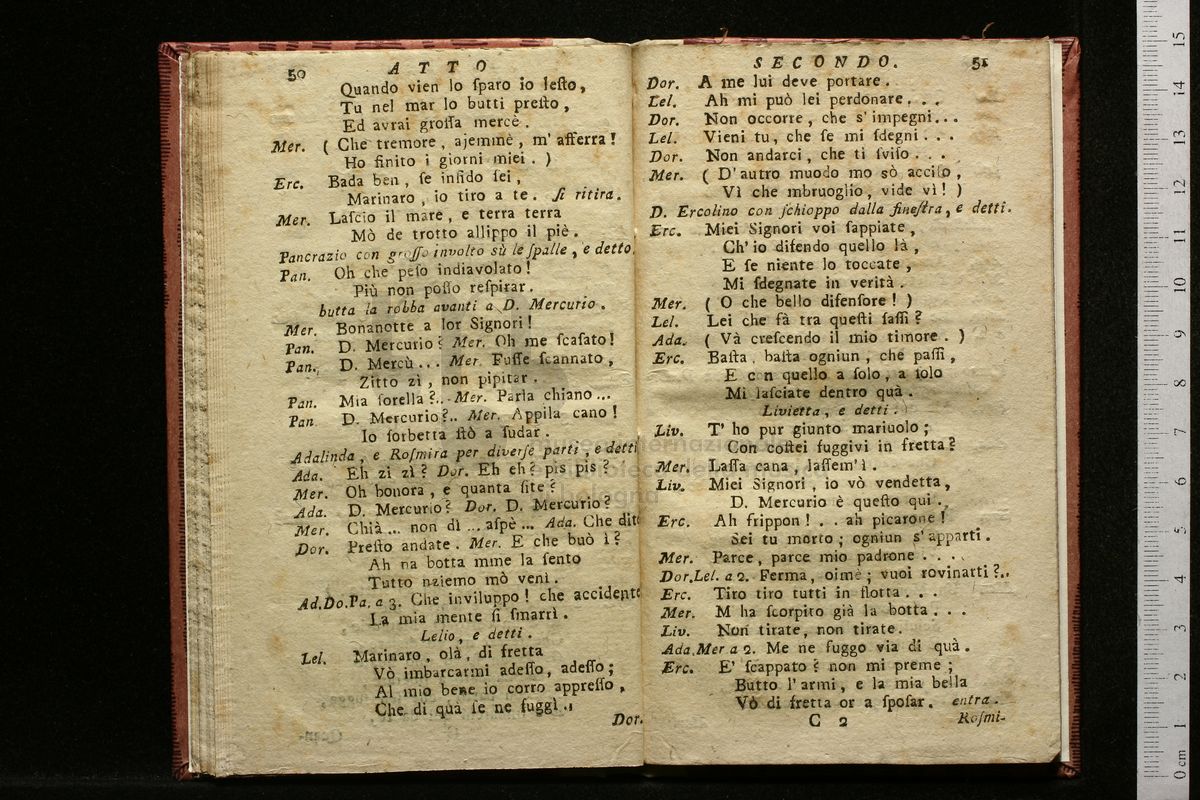 50
ATTO
Quando vien lo ſparo io leſto,
Tu nel mar lo butti preſto,
Ed avrai groſſa mercè.
Mer. ( Che tremore, ajemmè, m' afferra!
Ho finito i giorni miei. )
Erc. Bada ben, ſe infido ſei,
Marinaro, io tiro a te. ſi ritira.
Mer. Laſcio il mare, e terra terra
Mò de trotto allippo il piè.
Pancrazio con groſſo involto sù le ſpalle, e detto.
Pan. Oh che peſo indiavolato!
Più non poſſo reſpirar.
butta la robba avanti a D. Mercurio.
Mer. Bonanotte a lor Signori!
Pan. D. Mercurio? Mer. Oh me ſcaſato!
Pan. D. Mercù... Mer. Fuſſe ſcannato,
Zitto zì, non pipitar.
Pan. Mia ſorella?.. Mer. Parla chiano...
Pan. D. Mercurio?.. Mer. Appila cano!
Io ſorbetta ſtò a ſudar.
Adalinda, e Roſmira per diverſe parti, e detti
Ada. Eh zi zì? Dor. Eh eh? pis pis?
Mer. Oh bonora, e quanta ſite?
Ada. D. Mercurio? Dor. D. Mercurio?
Mer. Chià... non dì... aſpè... Ada. Che dite
Dor. Preſto andate. Mer. E che buò ì?
Ah na botta mme la ſento
Tutto nziemo mò venì.
Ad.Do.Pa. a 3. Che inviluppo! che accidente
La mia mente ſi ſmarrì.
Lelio, e detti.
Lel. Marinaro, olà, di fretta
Vò imbarcarmi adeſſo, adeſſo;
Al mio bene io corro appreſſo,
Che di quà ſe ne fuggì..
Dor.
SECONDO.
51
Dor. A me lui deve portare.
Lel. Ah mi può lei perdonare...
Dor. Non occorre, che s' impegni...
Lel. Vieni tu, che ſe mi ſdegni...
Dor. Non andarci, che ti ſviſo...
Mer. ( D' autro muodo mo sò acciſo,
Vì che mbruoglio, vide vì! )
D. Ercolino con ſchioppo dalla fineſtra, e detti.
Erc. Miei Signori voi ſappiate,
Ch' io difendo quello là,
E ſe niente lo toccate,
Mi ſdegnate in verità.
Mer. ( O che bello difenſore! )
Lel. Lei che fà tra queſti ſaſſi?
Ada. ( Và creſcendo il mio timore. )
Erc. Baſta, baſta ogniun, che paſſi,
E con quello a ſolo, a ſolo
Mi laſciate dentro quà.
Livietta, e detti.
Liv. T' ho pur giunto mariuolo;
Con coſtei fuggivi in fretta?
Mer. Laſſa cana, laſſem'ì.
Liv. Miei Signori, io vò vendetta,
D. Mercurio è queſto quì.
Erc. Ah frippon!.. ah picarone!
Sei tu morto; ogniun s' apparti.
Mer. Parce, parce mio padrone....
Dor.Lel. a 2. Ferma, oimè; vuoi rovinarti?..
Erc. Tiro tiro tutti in flotta...
Mer. M ha ſcorpito già la botta...
Liv. Non tirate, non tirate.
Ada.Mer a 2. Me ne fuggo via di quà.
Erc. E' ſcappato? non mi preme;
Butto l' armi, e la mia bella
Vò di fretta or a ſpoſar. entra.
C 2
Roſmi-
museo internazionale
e biblioteca della musica
di bologna
0 cm 1 2 3 4 5 6 7 8 9 10 11 12 13 14 15